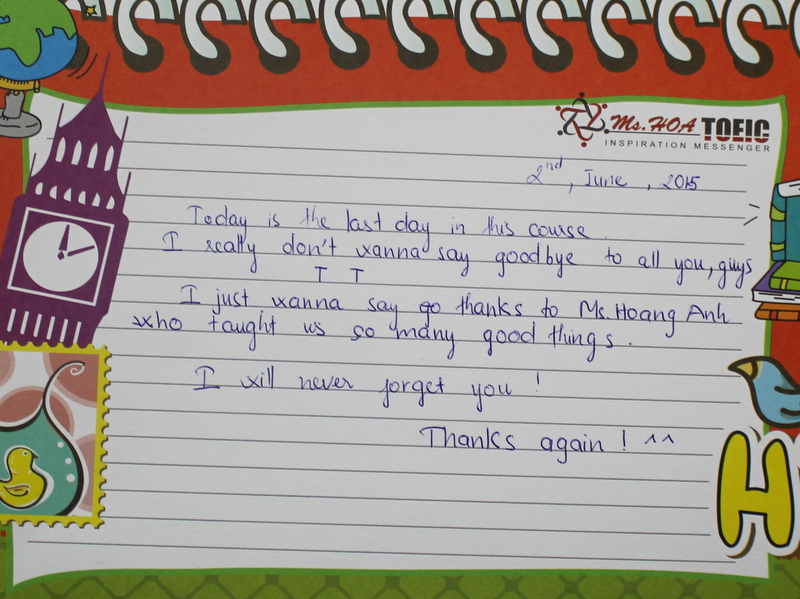 Ms. HOA TOEIC
INSPIRATION MESSENGER
2nd, June, 2015
Today is the last day in this course.
I really don't wanna say goodbye to all you, guys
T T
I just wanna say go thanks to Ms. Hoang Anh
who taught us so many good things.
I will never forget you !
Thanks again ! ^^
H